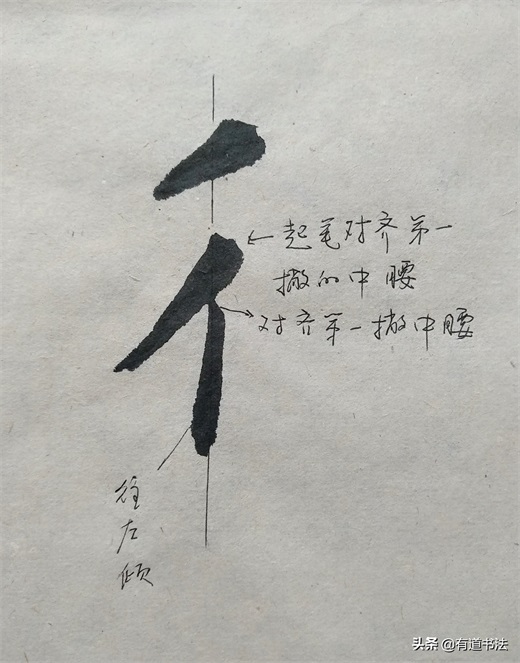 彳
←起笔对齐第一
撇的中腰
对齐第一撇中腰
往左倾
头条 @有道书法